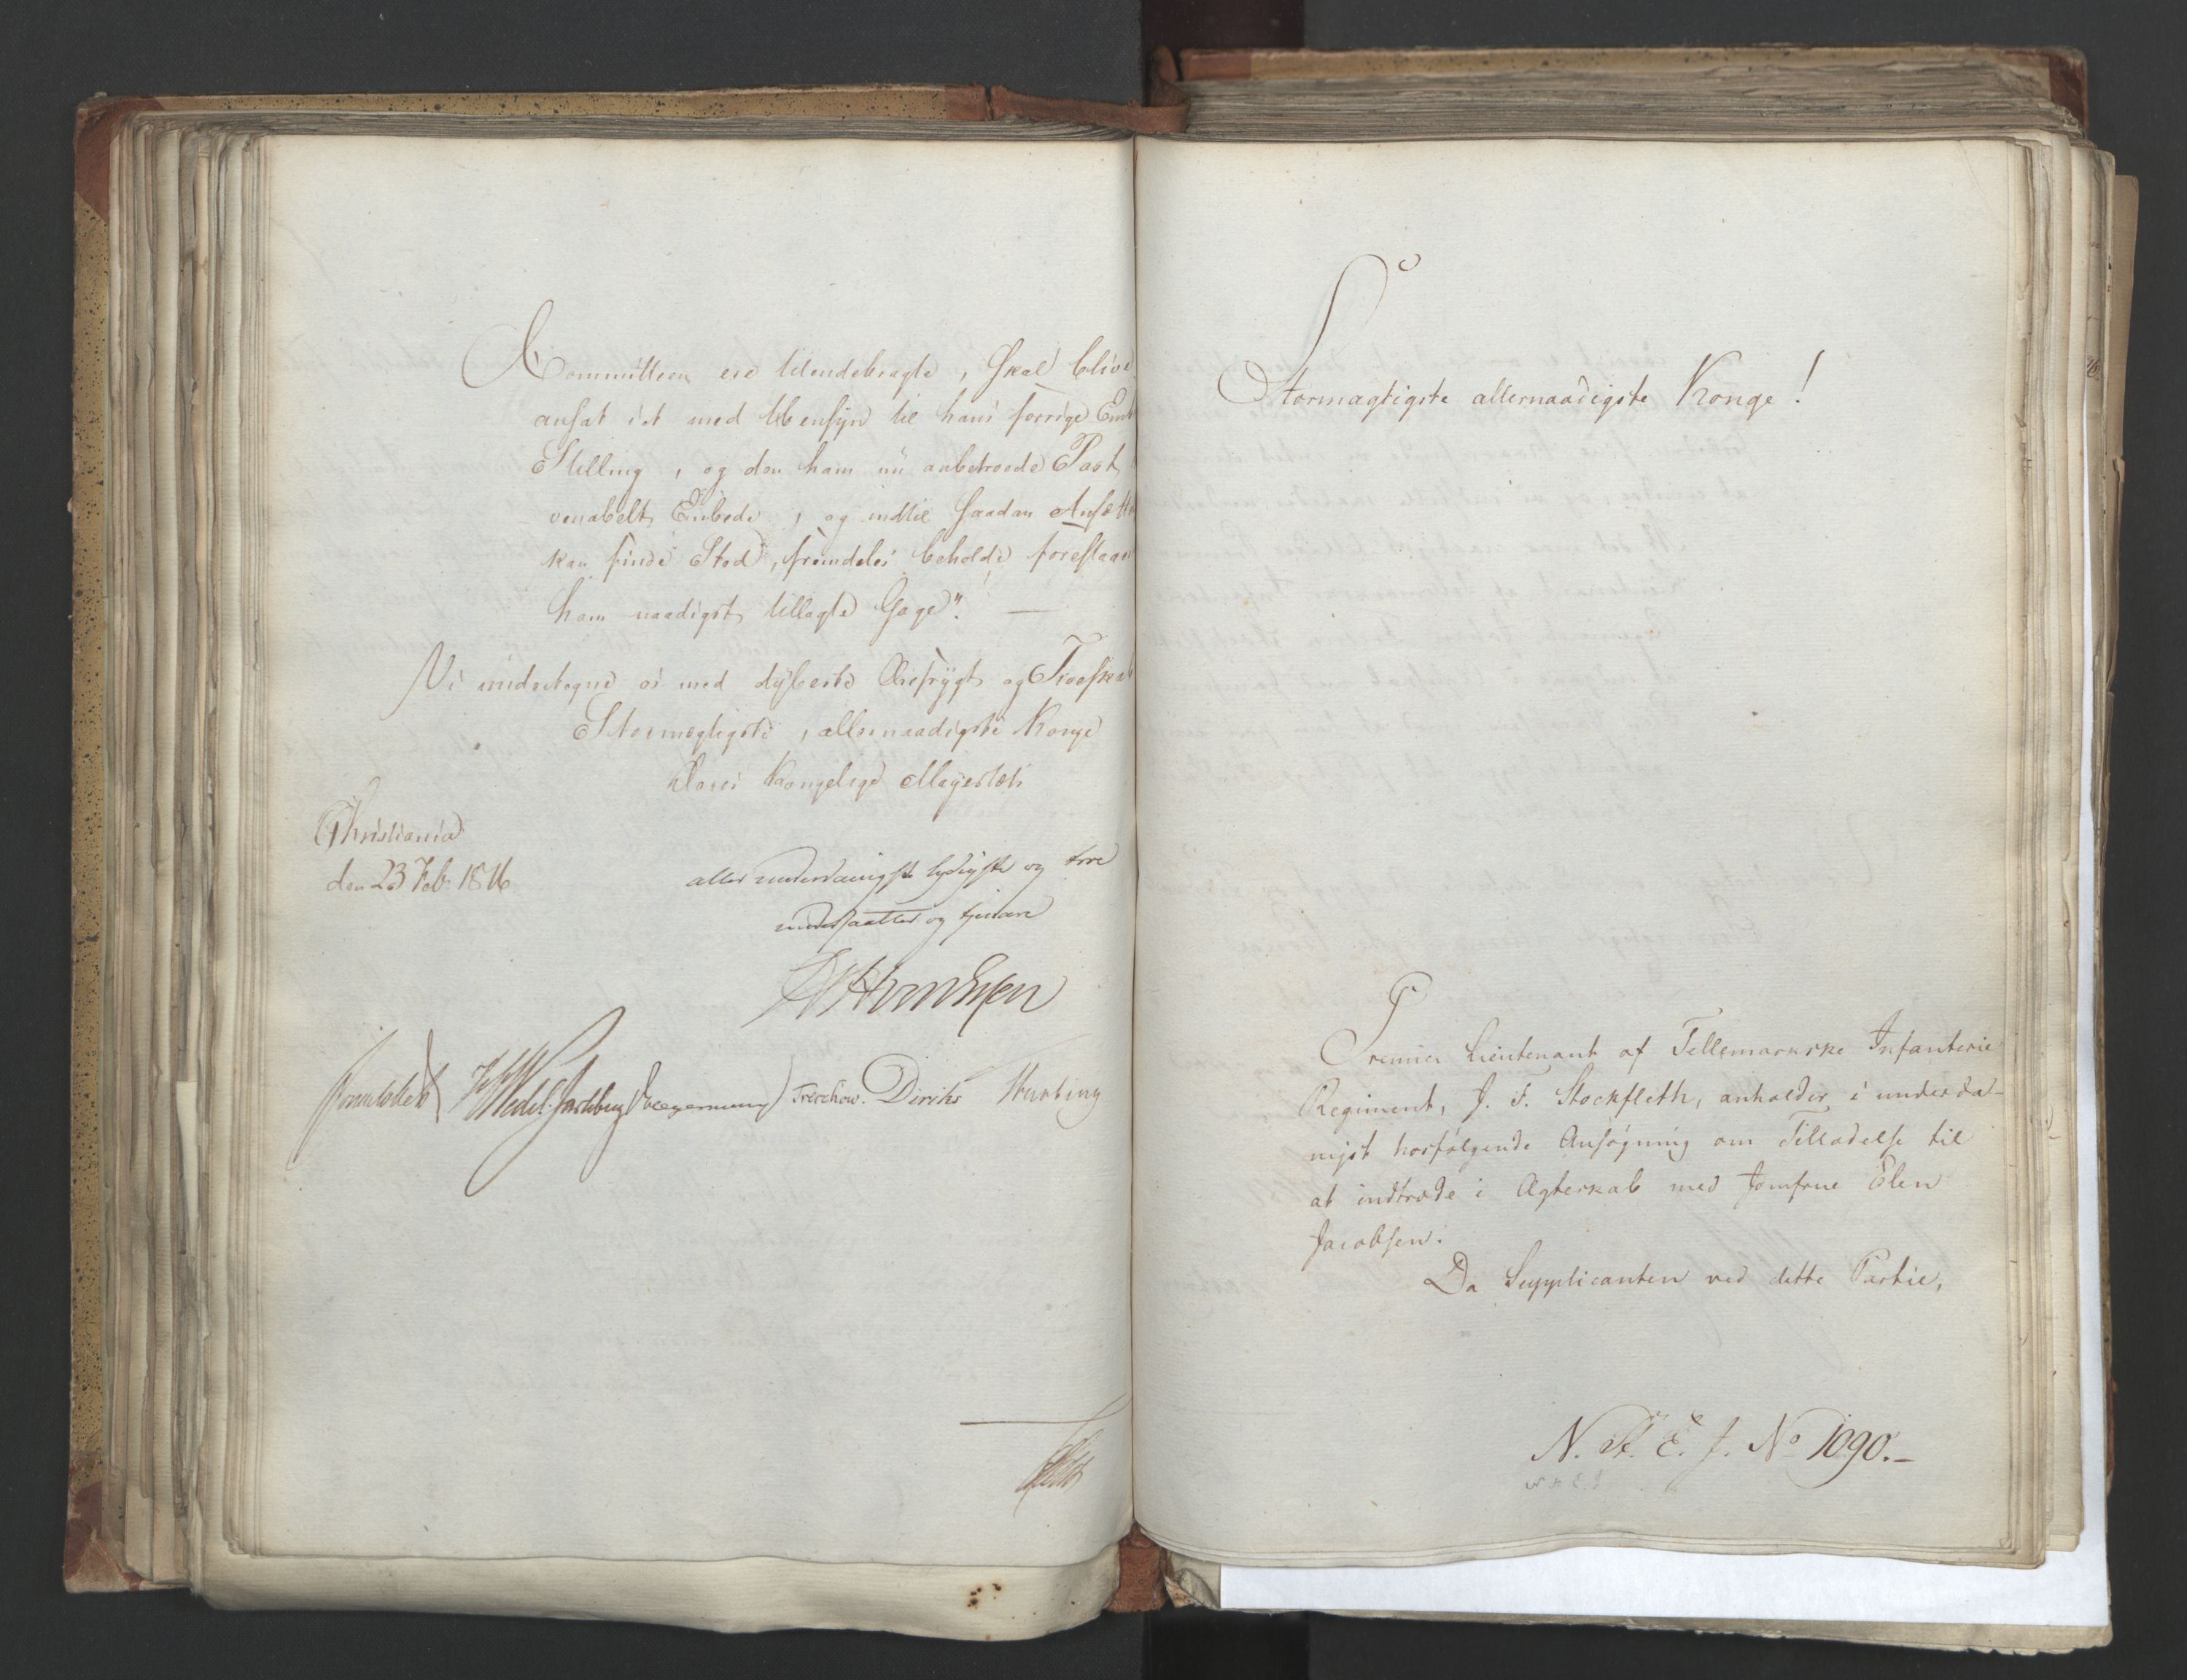 Committeen ere tilendebragte, skal blive
ansat i et med Hensyn til hans forrige Emb
Stilling, og den ham nu anbetroede Post
venabelt Embede, og indtil saadan Ansætt
kan finde Sted, fremdeles beholde forestaae
ham naadigst tillagte Gage". —
Vi undertegne os med dybeste Ærefrygt og Troeskab
Stormægtigste, allernaadigste Konge
Deres Kongelige Mayestæts
Christiania
den 23 Feb. 1816
allerunderdanigste lydigste og troe
undersaatter og tjenere
Sommerhielm HWedel Jarlsberg Treschow. Diriks
Stormægtigste allernaadigste Konge!
Premier Lieutenant af Tellemarkske Infanterie
Regiment, J. F. Stockfleth, anholder i underda-
nigst hosfølgende Ansøgning om Tilladelse til
at indtræde i Ægteskab med Jomfrue Elen
Jacobsen.
Da Supplicanten ved dette Partie,
N. St. E. J. No 1090.-